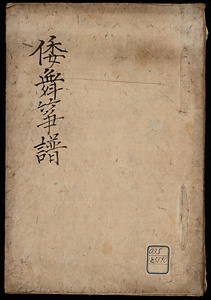 倭舞筝譜
035